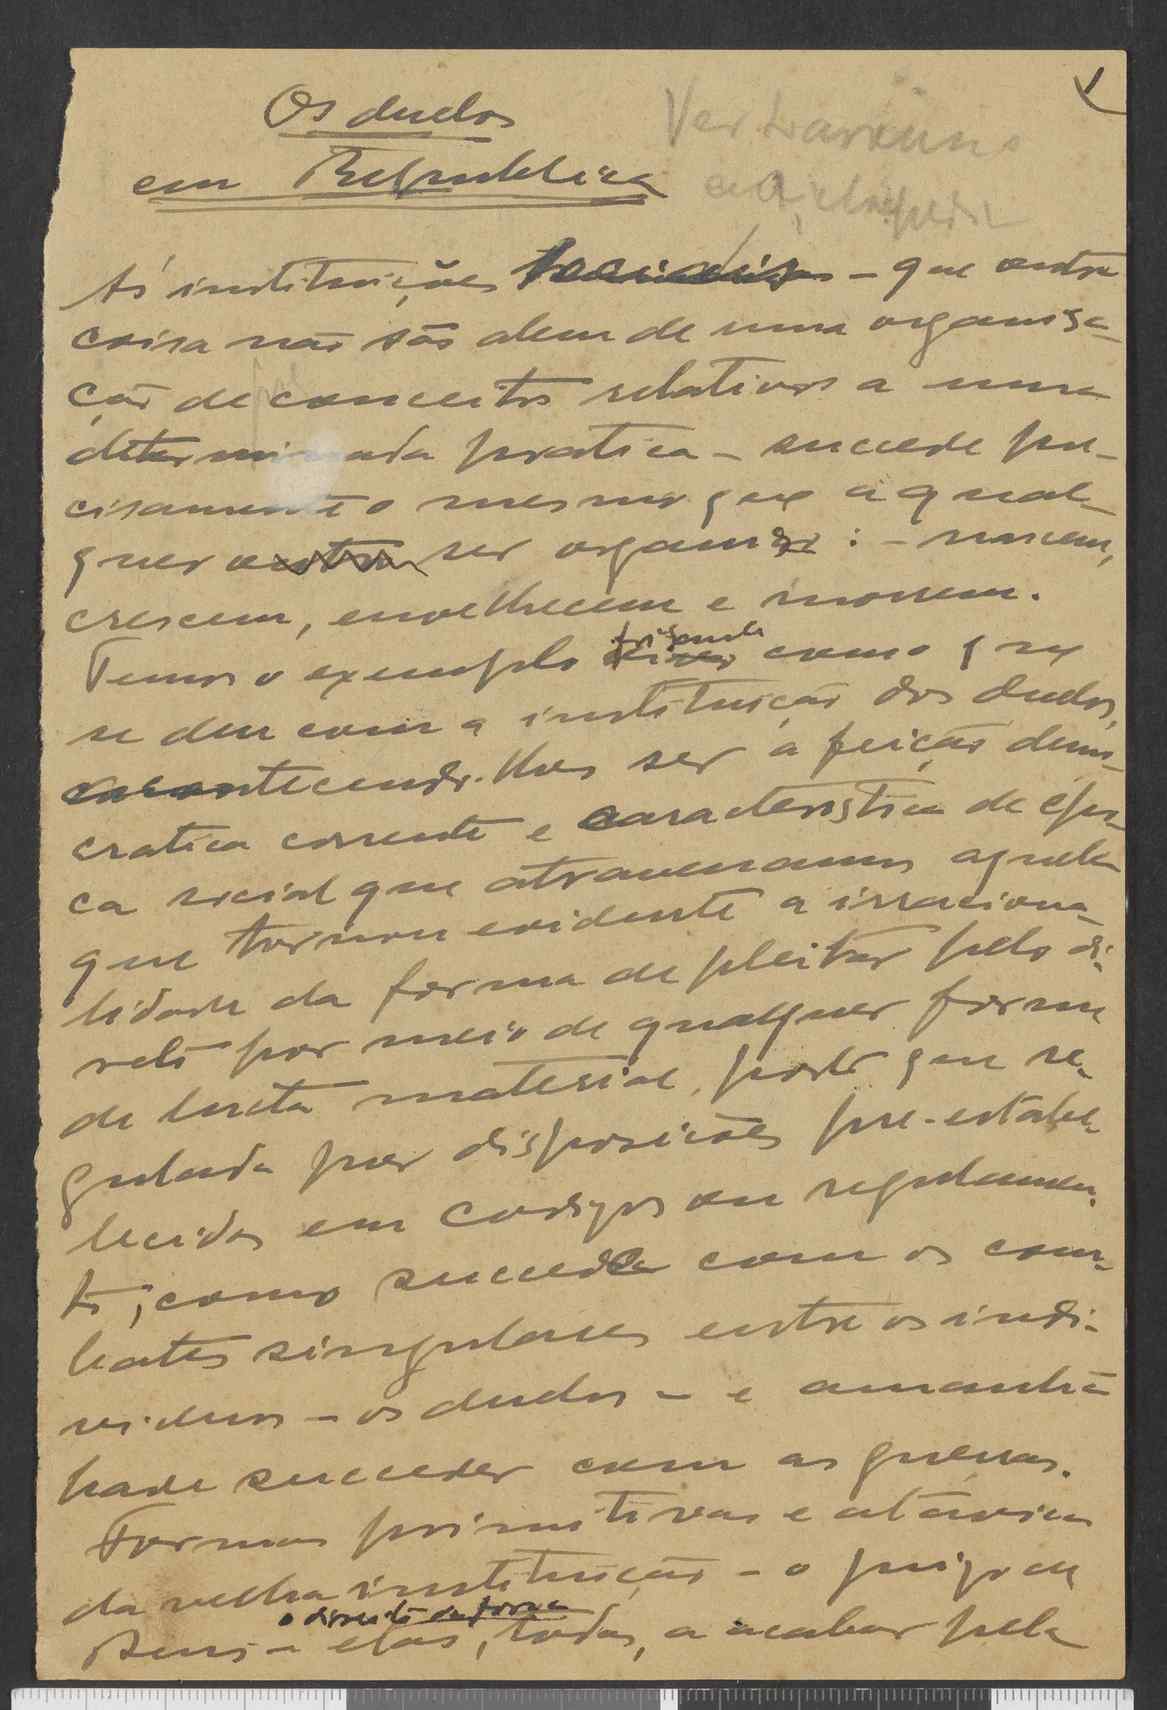 1
Os duelos
em Republica
Ver
Ás instituições sociais – que outra
coisa não são alem de uma organisa-
ção de conceitos relativos a uma
determinada pratica – succede pre-
cisamente o mesmo que a qual-
quer outro ser organico : – nascem,
crescem, envelhecem e morrem.
frisante
Temos o exemplo como que
se deu com a instituição dos duelos,
acontecendo-lhes ser a feição demo-
cratica corrente e caracteristica de épo-
ca social que atravessamos aquela
que tornou evidente a irraciona-
lidade da forma de pleitear pelo di-
reito por meio de qualquer forma
de lucta material, posto que re-
gulada por disposições pre-estabe-
lecidas em codigos ou regulamen-
tos; como succede com os com-
bates singulares entre os indi-
viduos – os duelos – e amanhã
hade succeder com as guerras.
Formas primitivas e atávicas
da velha instituição – o juizo de
o direito da força
Deus – elas, todas, a acabar pela